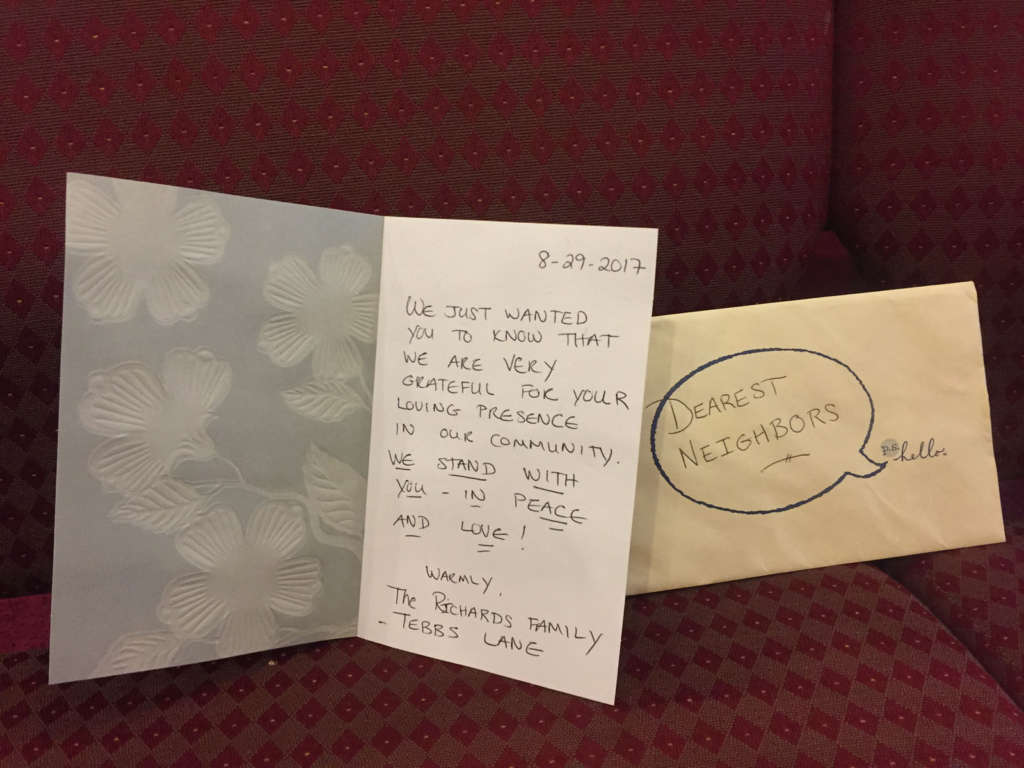 8-29-2017
WE JUST WANTED
YOU TO KNOW THAT
WE ARE VERY
GRATEFUL FOR YOUR
LOVING PRESENCE
IN OUR COMMUNITY.
WE STAND WITH
YOU - IN PEACE
AND LOVE!
WARMLY,
The RICHARDS FAMILY
- TEBBS LANE
DEAREST
NEIGHBORS
hello.